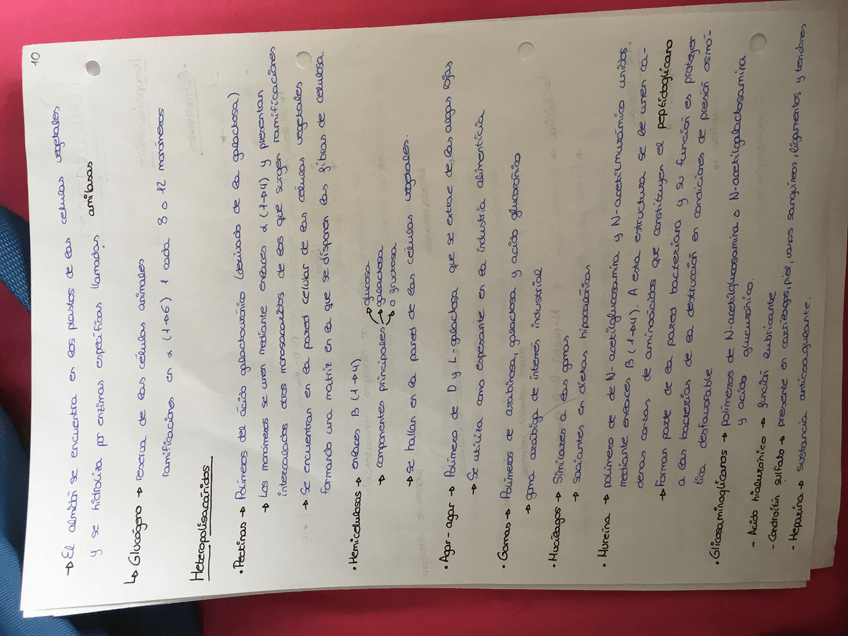 10
→ El almidón se encuentra en los plastos de las células vegetales
y se hidroliza por enzimas específicas llamadas amilasas
↳ Glucógeno → reserva de las células animales
ramificaciones en α (1→6) 1 cada 8 o 12 monómeros
Heteropolisacáridos
• Pectinas → Polímeros del ácido galacturónico (derivado de la galactosa)
→ Los monómeros se unen mediante enlaces α (1→4) y presentan
intercalados otros monosacáridos de los que surgen ramificaciones
→ Se encuentran en la pared celular de las células vegetales
formando una matriz en la que se disponen las fibras de celulosa
• Hemicelulosas → enlaces B (1→4)
→ componentes principales: → glucosa
→ galactosa
→ o fructosa
→ se hallan en la pared de las células vegetales.
• Agar-agar → Polímero de D y L-galactosa que se extrae de las algas rojas
→ Se utiliza como espesante en la industria alimenticia
• Gomas → Polímeros de arabinosa, galactosa y ácido glucurónico
→ goma arábiga de interés industrial
• Mucílagos → Similares a las gomas
→ saciantes en dietas hipocalóricas
• Mureina → polímero de de N-acetilglucosamina y N-acetilmurámico unidos
mediante enlaces B (1→4). A esta estructura se le unen ca-
denas cortas de aminoácidos que constituyen el peptidoglicano
→ Forman parte de la pared bacteriana y su función es proteger
a las bacterias de la destrucción en condiciones de presión osmó-
tica desfavorable
• Glicosaminoglicanos → polímeros de N-acetilglucosamina o N-acetilgalactosamina
y ácido glucurónico.
- Acido hialurónico → función lubricante
- Condroitín sulfato → presente en cartílagos, piel, vasos sanguíneos, ligamentos y tendones
- Heparina → sustancia anticoagulante.